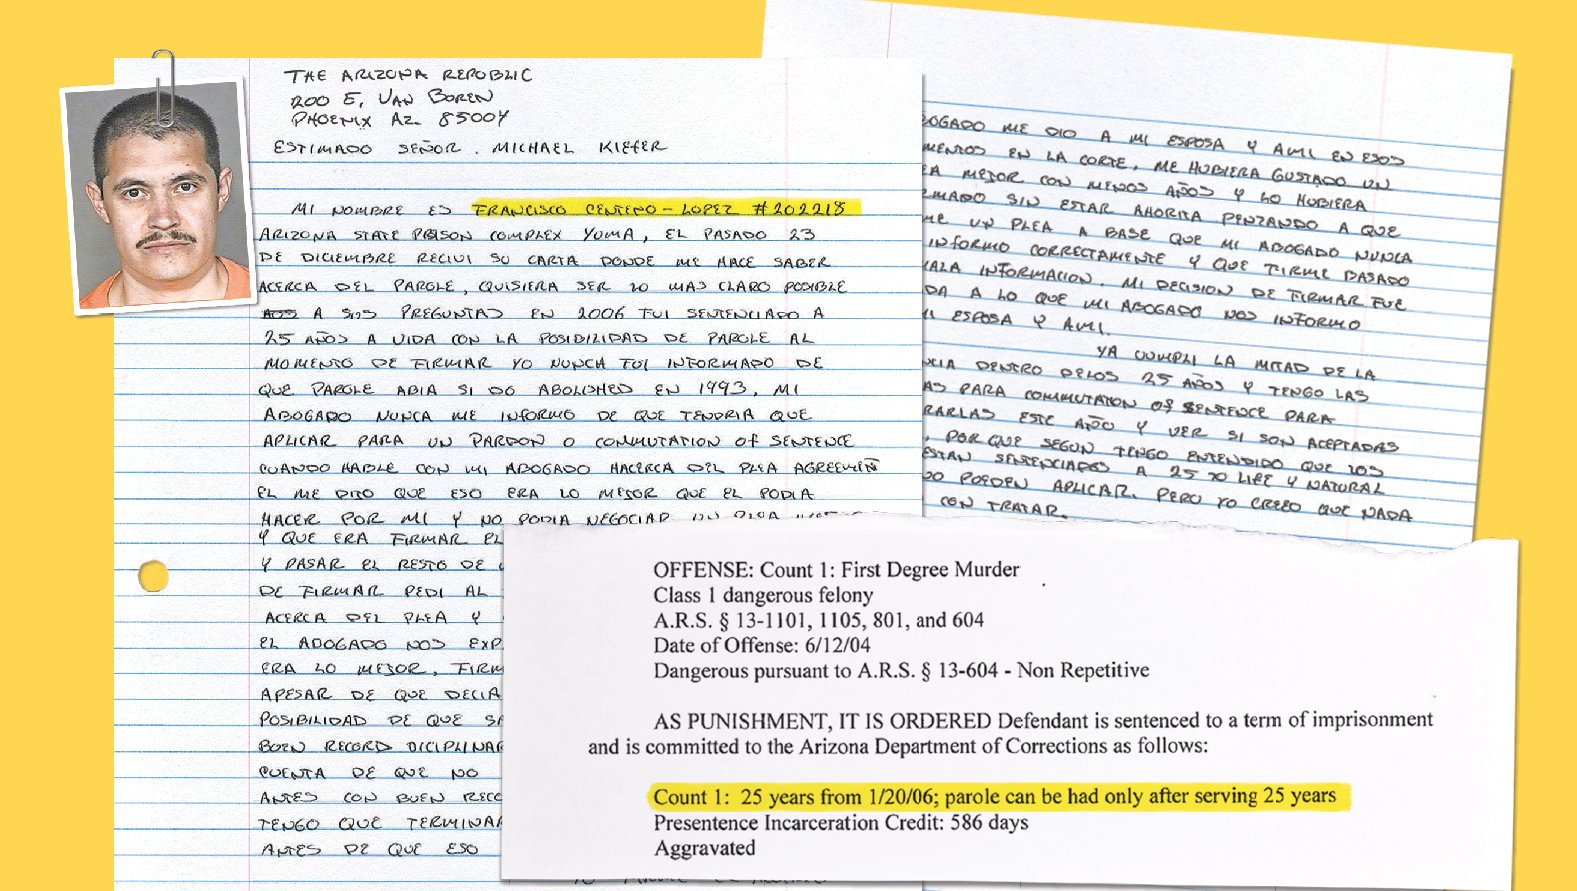 THE ARIZONA REPUBLIC
200 E, VAN BOREN
PHOENIX AZ. 85004
ESTIMADO SEÑOR. MICHAEL KIEFER
MI NOMBRE ES FRANCISCO CENTENO-LOPEZ #202218
ARIZONA STATE PRISON COMPLEX YUMA, EL PASADO 23
DE DICIEMBRE RECIVI SU CARTA DONDE ME HACE SABER
ACERCA DEL PAROLE, QUISIERA SER LO MAS CLARO POSIBLE
A SUS PREGUNTAS EN 2006 FUI SENTENCIADO A
25 AÑOS A VIDA CON LA POSIDILIDAD DE PAROLE AL
MOMENTO DE FIRMAR YO NUNCA FUI INFORMADO DE
QUE PAROLE ABIA SI DO ABOLISHED EN 1993, MI
ABOGADO NUNCA ME INFORMO DE QUE TENDRIA QUE
APLICAR PARA UN PARDON O COMMUTATION OF SENTENCE
CUANDO HABLE CON MI ABOGADO HACERCA DEL PLEA AGREEMEN
EL ME DIJO QUE ESO ERA LO MEJOR QUE EL PODIA
HACER POR MI Y NO PODIA NEGOCIAR UN PLEA
Y QUE ERA FIRMAR EL
Y PASAR EL RESTO DE
DE FIRMAR PEDI AL
ACERCA DEL PLEA Y
EL ABOGADO NOS EXP
ERA LO MEJOR, FIRM
APESAR DE QUE DECIA
POSIBILIDAD DE QUE SA
BUEN RECORD DICIPLINAR
CUENTA DE QUE NO
ANTES CON BUEN RECO
TENGO QUE TERMINAR
ANTES DE QUE ESO
BOGADO ME DIO A MI ESPOSA Y AMI EN ESOS
MENTOS EN LA CORTE, ME HUBIERA GUSTADO UN
EA MEJOR CON MENOS AÑOS Y LO HUBIERA
RMADO SIN ESTAR AHORITA PENZANDO A QUE
ME UN PLEA A BASE QUE MI ABOGADO NUNCA
INFORMO CORRECTAMENTE Y QUE FIRME BASADO
MALA INFORMACION, MI DECISION DE FIRMAR FUE
DA A LO QUE MI ABOGADO NOS INFORMO
MI ESPOSA Y AMI.
YA CUMPLI LA MITAD DE LA
NCIA DENTRO DELOS 25 AÑOS Y TENGO LAS
AS PARA COMMUTATION OF SENTENCE PARA
RARLAS ESTE AÑO Y VER SI SON ACEPTADAS
, POR QUE SEGUN TENGO ENTENDIDO QUE LOS
ESTAN SENTENCIADOS A 25 TO LIFE Y NATURAL
NO PUEDEN APLICAR. PERO YO CREEO QUE NADA
CON TRATAR.
OFFENSE: Count 1: First Degree Murder
Class 1 dangerous felony
A.R.S. § 13-1101, 1105, 801, and 604
Date of Offense: 6/12/04
Dangerous pursuant to A.R.S. § 13-604 - Non Repetitive
AS PUNISHMENT, IT IS ORDERED Defendant is sentenced to a term of imprisonment
and is committed to the Arizona Department of Corrections as follows:
Count 1: 25 years from 1/20/06; parole can be had only after serving 25 years
Presentence Incarceration Credit: 586 days
Aggravated